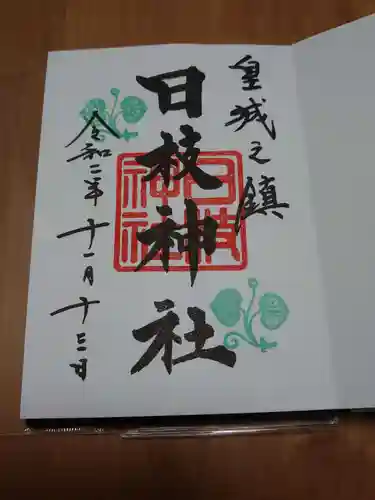 皇城之鎮
日枝神社
日枝神社
令和二年十一月十三日